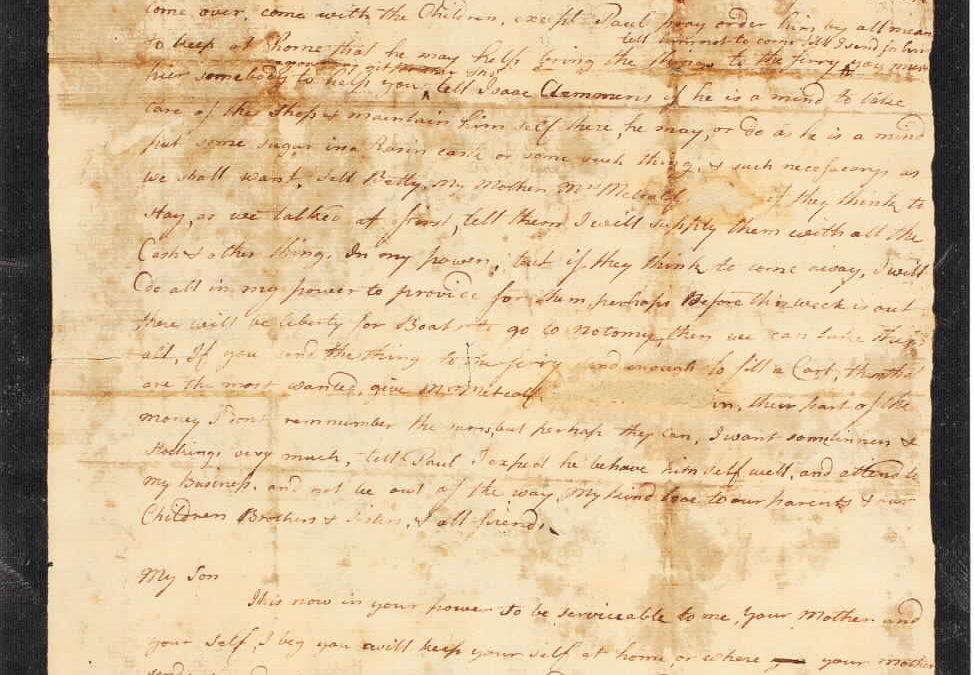 come over. come with the Children, except Paul pray order him by all means
tell him not to come till I send for him
to keep at home that he may help bring the things to the ferry you must
hier somebody to help you, tell Isaac Clemmens if he is a mind to take
care of the shop & maintain him self there he may, or do as he is a mind
put some sugar in a Raisin cask or some such thing, & such necessarys as
we shall want, tell Betty, My Mother, Mrs Metcalf if they think to
stay, as we talked at first, tell them I will supply them with all the
Cash & other things In my power, but if they think to come away, I will
do all in my power to provide for them, perhaps Before this week is out
there will be liberty for Boats to go to Notomy, then we can take them
all, If you send the things to the ferry send enough to fill a Cart, them that
are the most wanted, give Mrs Metcalf in, their part of the
money I dont remmember the sums, but perhaps they can, I want some linnen &
stockings very much, tell Paul I expect he behave him self well, and attend to
my Business, and not be out of the way, My kind love to our parents & our
Children Brothers & Sisters, & all friends,
My Son
It is now in your power to be serviceable to me, Your Mother and
your self, I beg you will keep your self at home, or where your mother